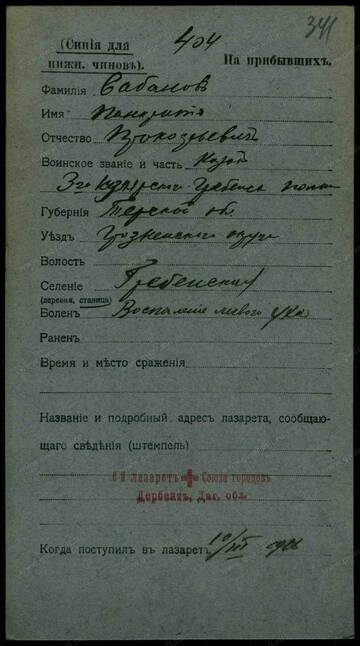 341
(Синія для 404
нижн. чиновъ). На прибывшихъ.
Фамилія Сабановъ
Имя Панкратъ
Отчество
Воинское званіе и часть Казакъ
3го Гребенск. полка
Губернія Терской обл.
Уѣздъ Грозненскаго округа
Волость
Селеніе Гребенская
(деревня, станица)
Боленъ Воспаленіе лѣваго уха
Раненъ
Время и мѣсто сраженія
Названіе и подробный адресъ лазарета, сообщаю-
щаго свѣдѣнія (штемпель)
6й лазаретъ Союза городовъ
Дербентъ, Даг. обл.
Когда поступилъ въ лазаретъ 10/III 1916